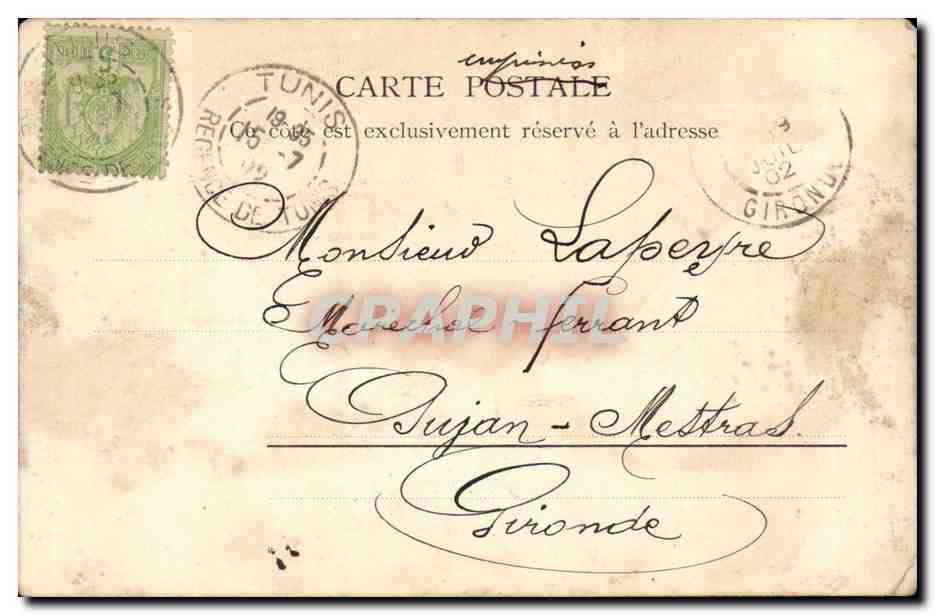 imprimés
CARTE POSTALE
Ce côté est exclusivement réservé à l'adresse
TUNIS
19-35
15 -7
02
REGENCE DE TUNIS
JUIL
02
GIRONDE
Monsieur Lapeyre
Marechal ferrant
CPAPHIL
Gujan-Mestras
Gironde